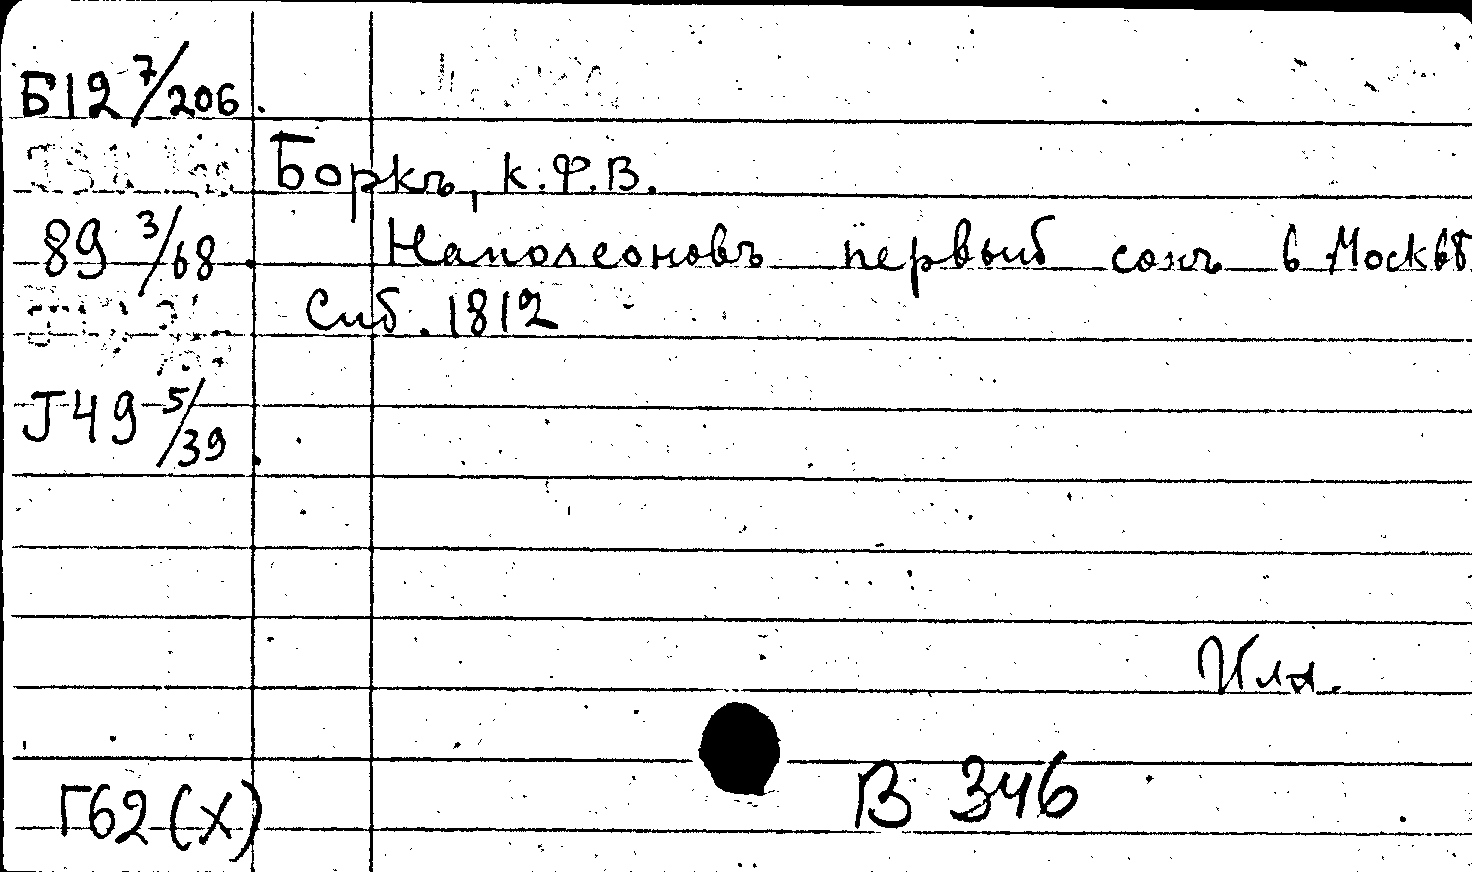 Б12 7/206.
Боркъ, К.Ф.В.
89 3/68
Наполеоновъ первый сонъ в Москвѣ
Спб. 1812
J49 5/39
Илл.
Г62(X)
В 346